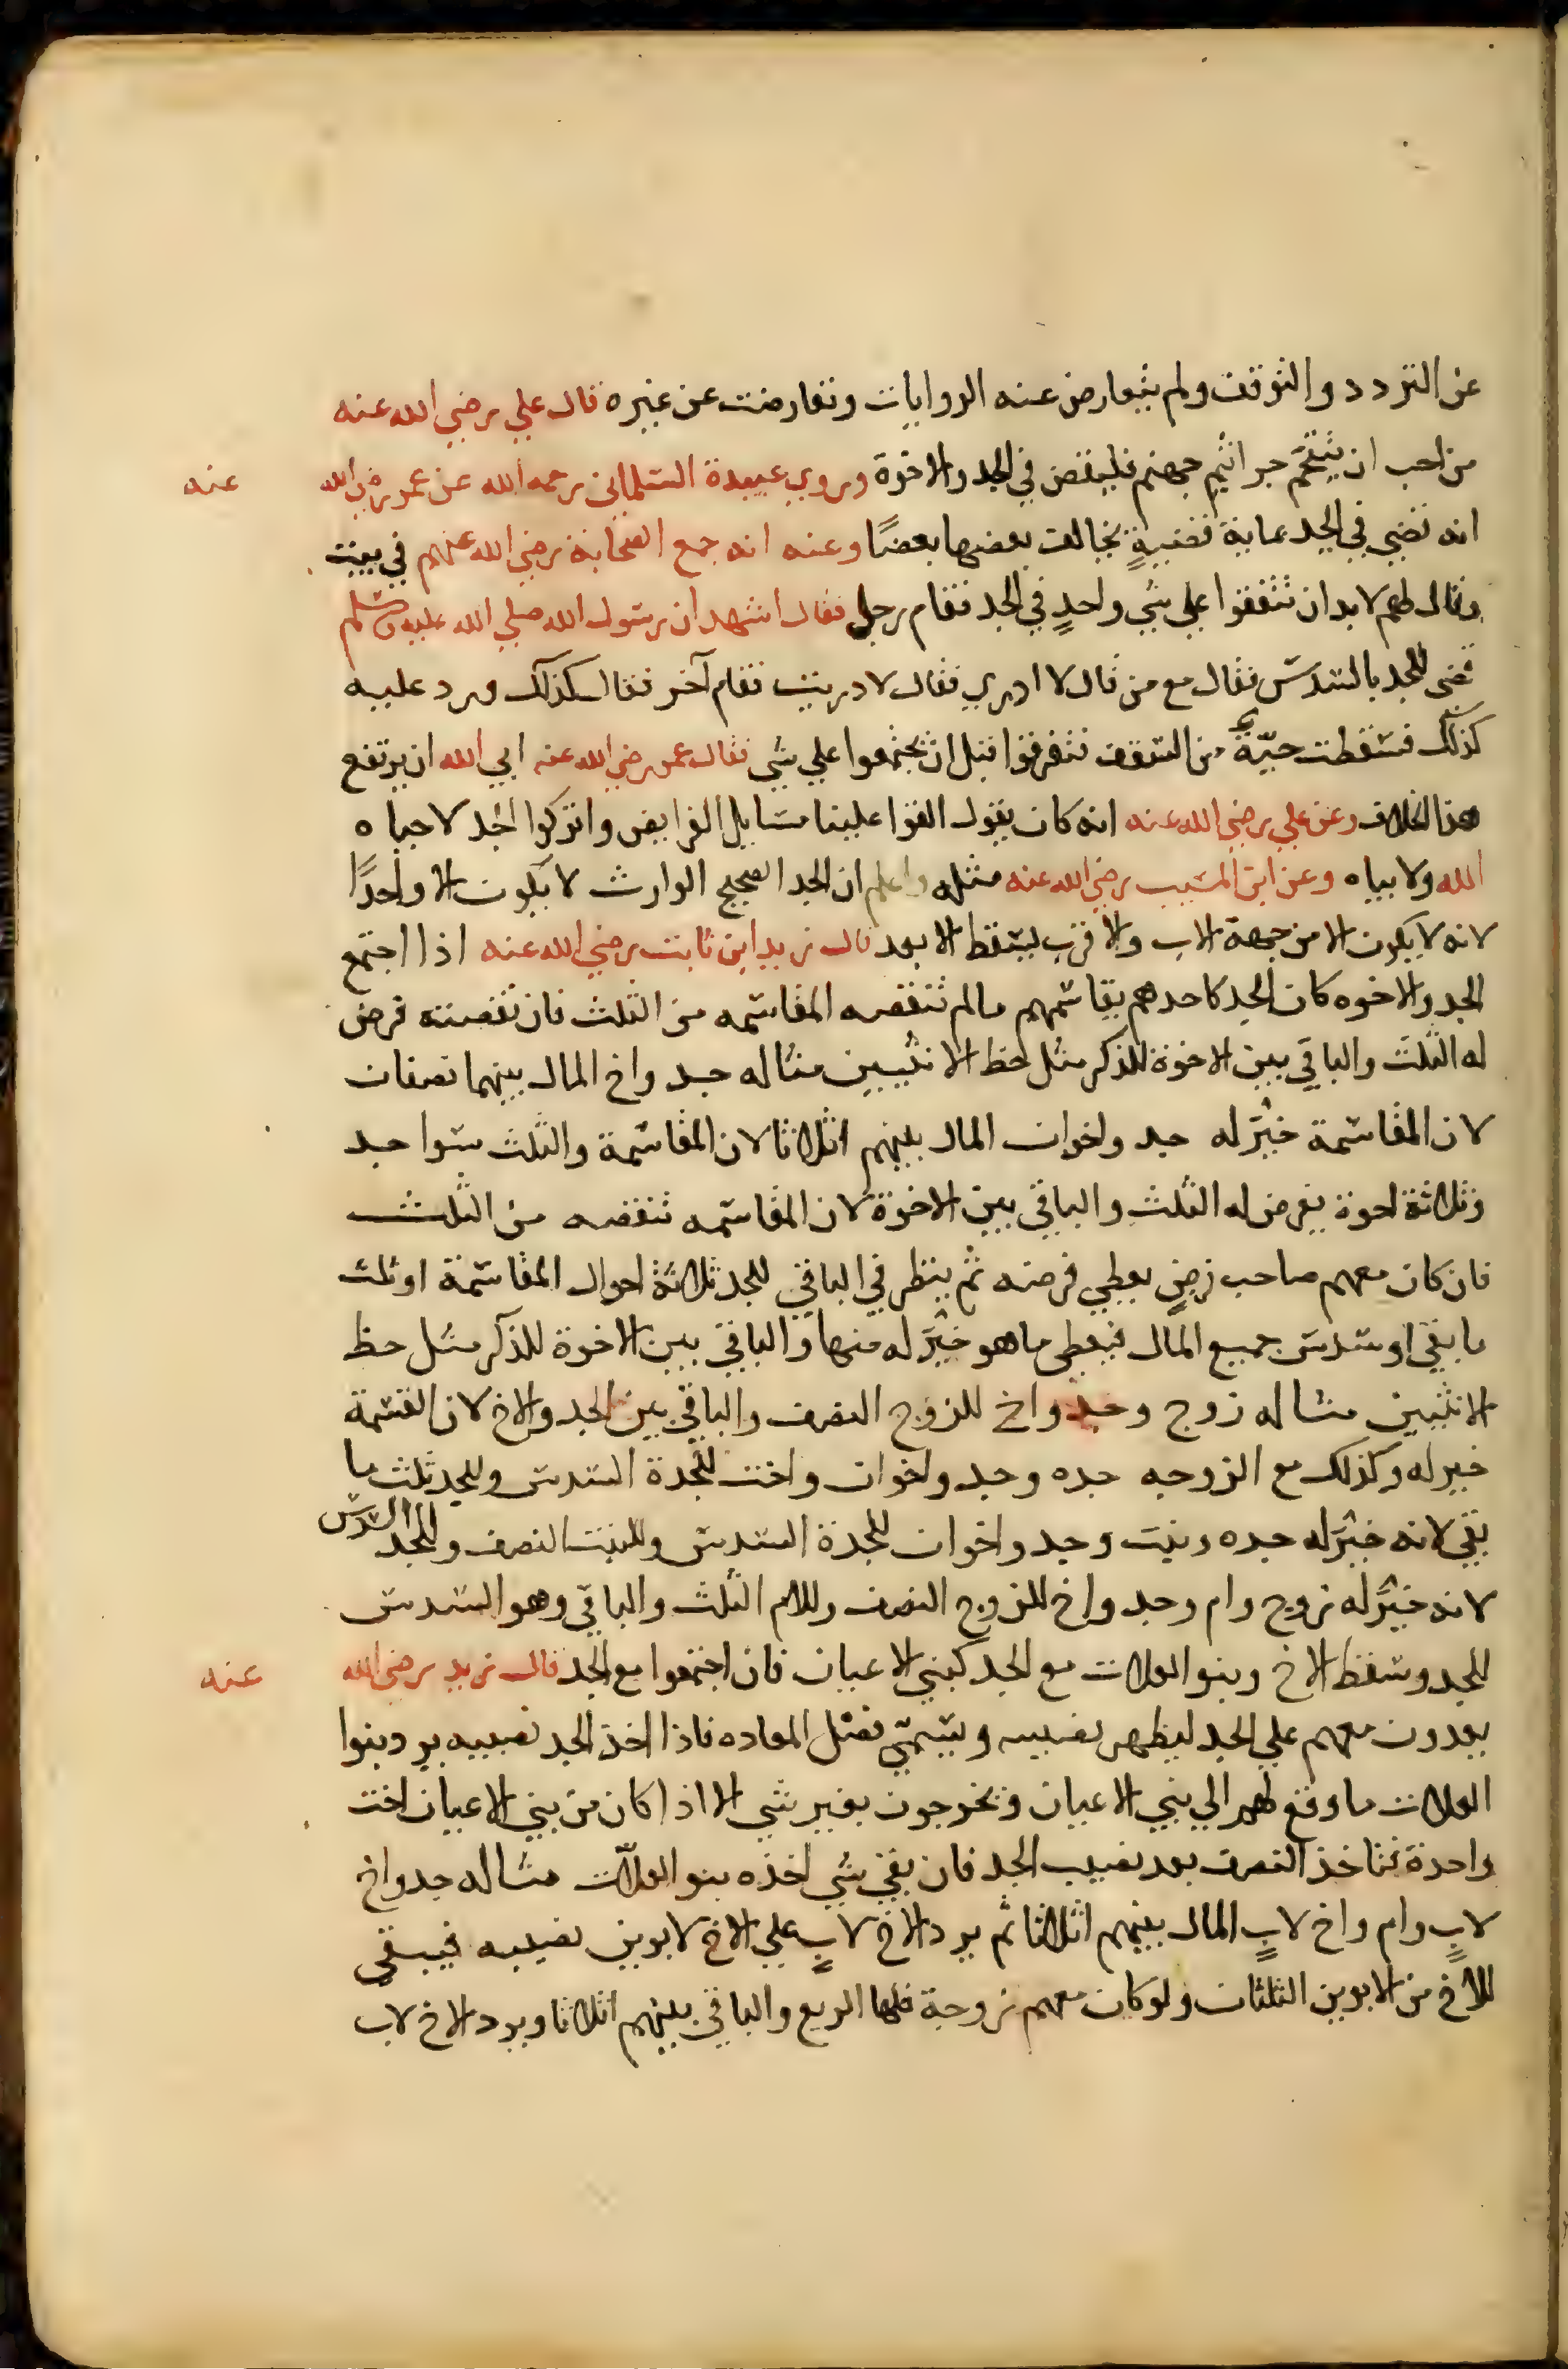 عن التردد والتوقف ولم يتعارض عنه الروايات وتعارضت عن غيره قال علي رضي الله عنه
من احب ان يتقحم جراثيم جهنم فليقض في الجد والاخوة وروي عبيدة السلماني رحمه الله عن عمر رضي الله عنه
انه قضي في الجد بماية قضية يخالف بعضها بعضًا وعنه انه جمع الصحابة رضي الله عنهم في بيت
وقال لهم لا بد ان تتفقوا علي شي واحدٍ في الجد فقام رجل فقال اشهد ان رسول الله صلي الله عليه وسلم
قضى للجد بالسدس فقال مع من قال لا ادري فقال لا دريت فقام آخر فقال كذلك ورد عليه
كذلك فسقطت حيّةٌ من السقف فتفرقوا قبل ان يجتمعوا علي شي فقال عمر رضي الله عنه ابي الله ان يرتفع
هذا الخلاف وعن علي رضي الله عنه انه كان يقول القوا علينا مسايل الفرايض واتركوا الجد لا حياه
الله ولا بياه وعن ابن المسيب رضي الله عنه مثله واعلم ان الجد الصحيح الوارث لا يكون الا واحدًا
لانه لا يكون الا من جهة الاب والاقرب يسقط الابعد قال زيد ابن ثابت رضي الله عنه اذا اجتمع
الجد والاخوه كان الجد كاحدهم يقاسمهم مالم تنقصه المقاسمه من الثلث فان نقصته فرض
له الثلث والباقي بين الاخوة للذكر مثل حظ الانثيين مثاله جد واخ المال بينهما نصفان
لان المقاسمة خيرٌ له جد واخوان المال بينهم اثلاثا لان المقاسمة والثلث سوا جد
وثلاثة اخوة يفرض له الثلث والباقي بين الاخوة لان المقاسمه تنقصه من الثلث
فان كان معهم صاحب فرضٍ يعطي فرضه ثم ينظر في الباقي للجد ثلاثة احوال المقاسمة او ثلث
ما بقي او سدس جميع المال فيعطى ما هو خيرٌ له منها والباقي بين الاخوة للذكر مثل حظ
الانثيين مثاله زوج وجد واخ للزوج النصف والباقي بين الجد والاخ لان القسمة
خير له وكذلك مع الزوجه جده وجد واخوان واخت للجدة السدس وللجد ثلث ما
بقي لانه خيرٌ له جده وبنت وجد واخوان للجدة السدس وللبنت النصف وللجد السدس
لانه خيرٌ له زوج وام وجد واخ للزوج النصف وللام الثلث والباقي وهو السدس
للجد وسقط الاخ وبنو العلات مع الجد كبني الاعيان فان اجتمعوا مع الجد قال زيد رضي الله عنه
يعدون معهم علي الجد ليظهر نصيبه ويسمّي فصل المعاده فاذا اخذ الجد نصيبه يرد بنوا
العلات ما وقع لهم الي بني الاعيان ويخرجون بغير شي الا اذا كان من بني الاعيان اخت
واحدة فتاخذ النصف بعد نصيب الجد فان بقي شي اخذه بنو العلات مثاله جد واخ
لابٍ وام واخ لابٍ المال بينهم اثلاثا ثم يرد الاخ لابٍ علي الاخ لابوين نصيبه فيبقي
للاخ من الابوين الثلثان ولو كان معهم زوجة فلها الربع والباقي بينهم اثلاثا ويرد الاخ لاب